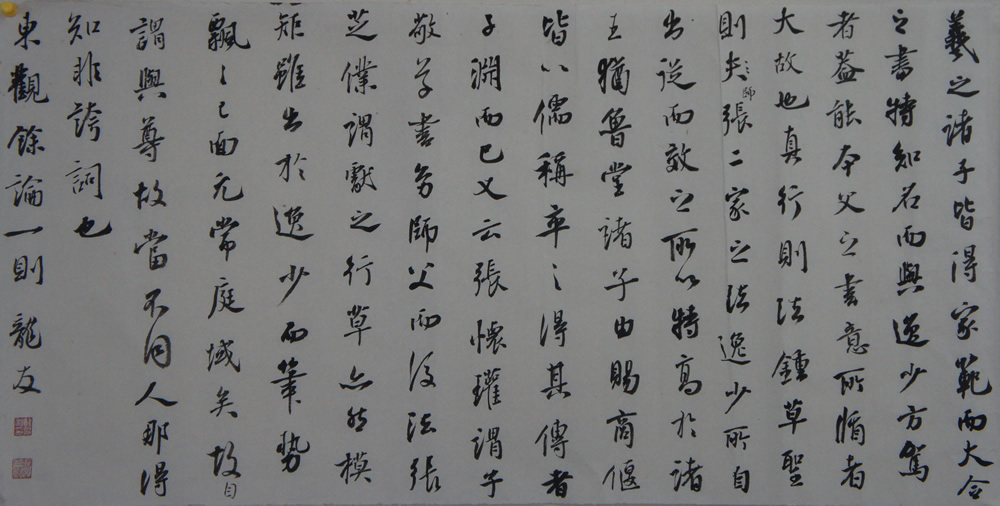 羲之諸子皆得家範而大令
之書特知名而與逸少方駕
者蓋能本父之書意所循者
大故也真行則法鍾草聖
則夫師張二家之法逸少所自
出從而效之所以特高於諸
王猶魯堂諸子由賜商偃
皆以儒稱卒之得其傳者
子淵而已又云張懷瓘謂子
敬學書多師父而後法張
芝僕謂獻之行草亦然模
矩雖出於逸少而筆勢
飄飄已面無常庭域矣故自
謂與尊故當不同人那得
知非誇詞也
東觀餘論一則 龍友